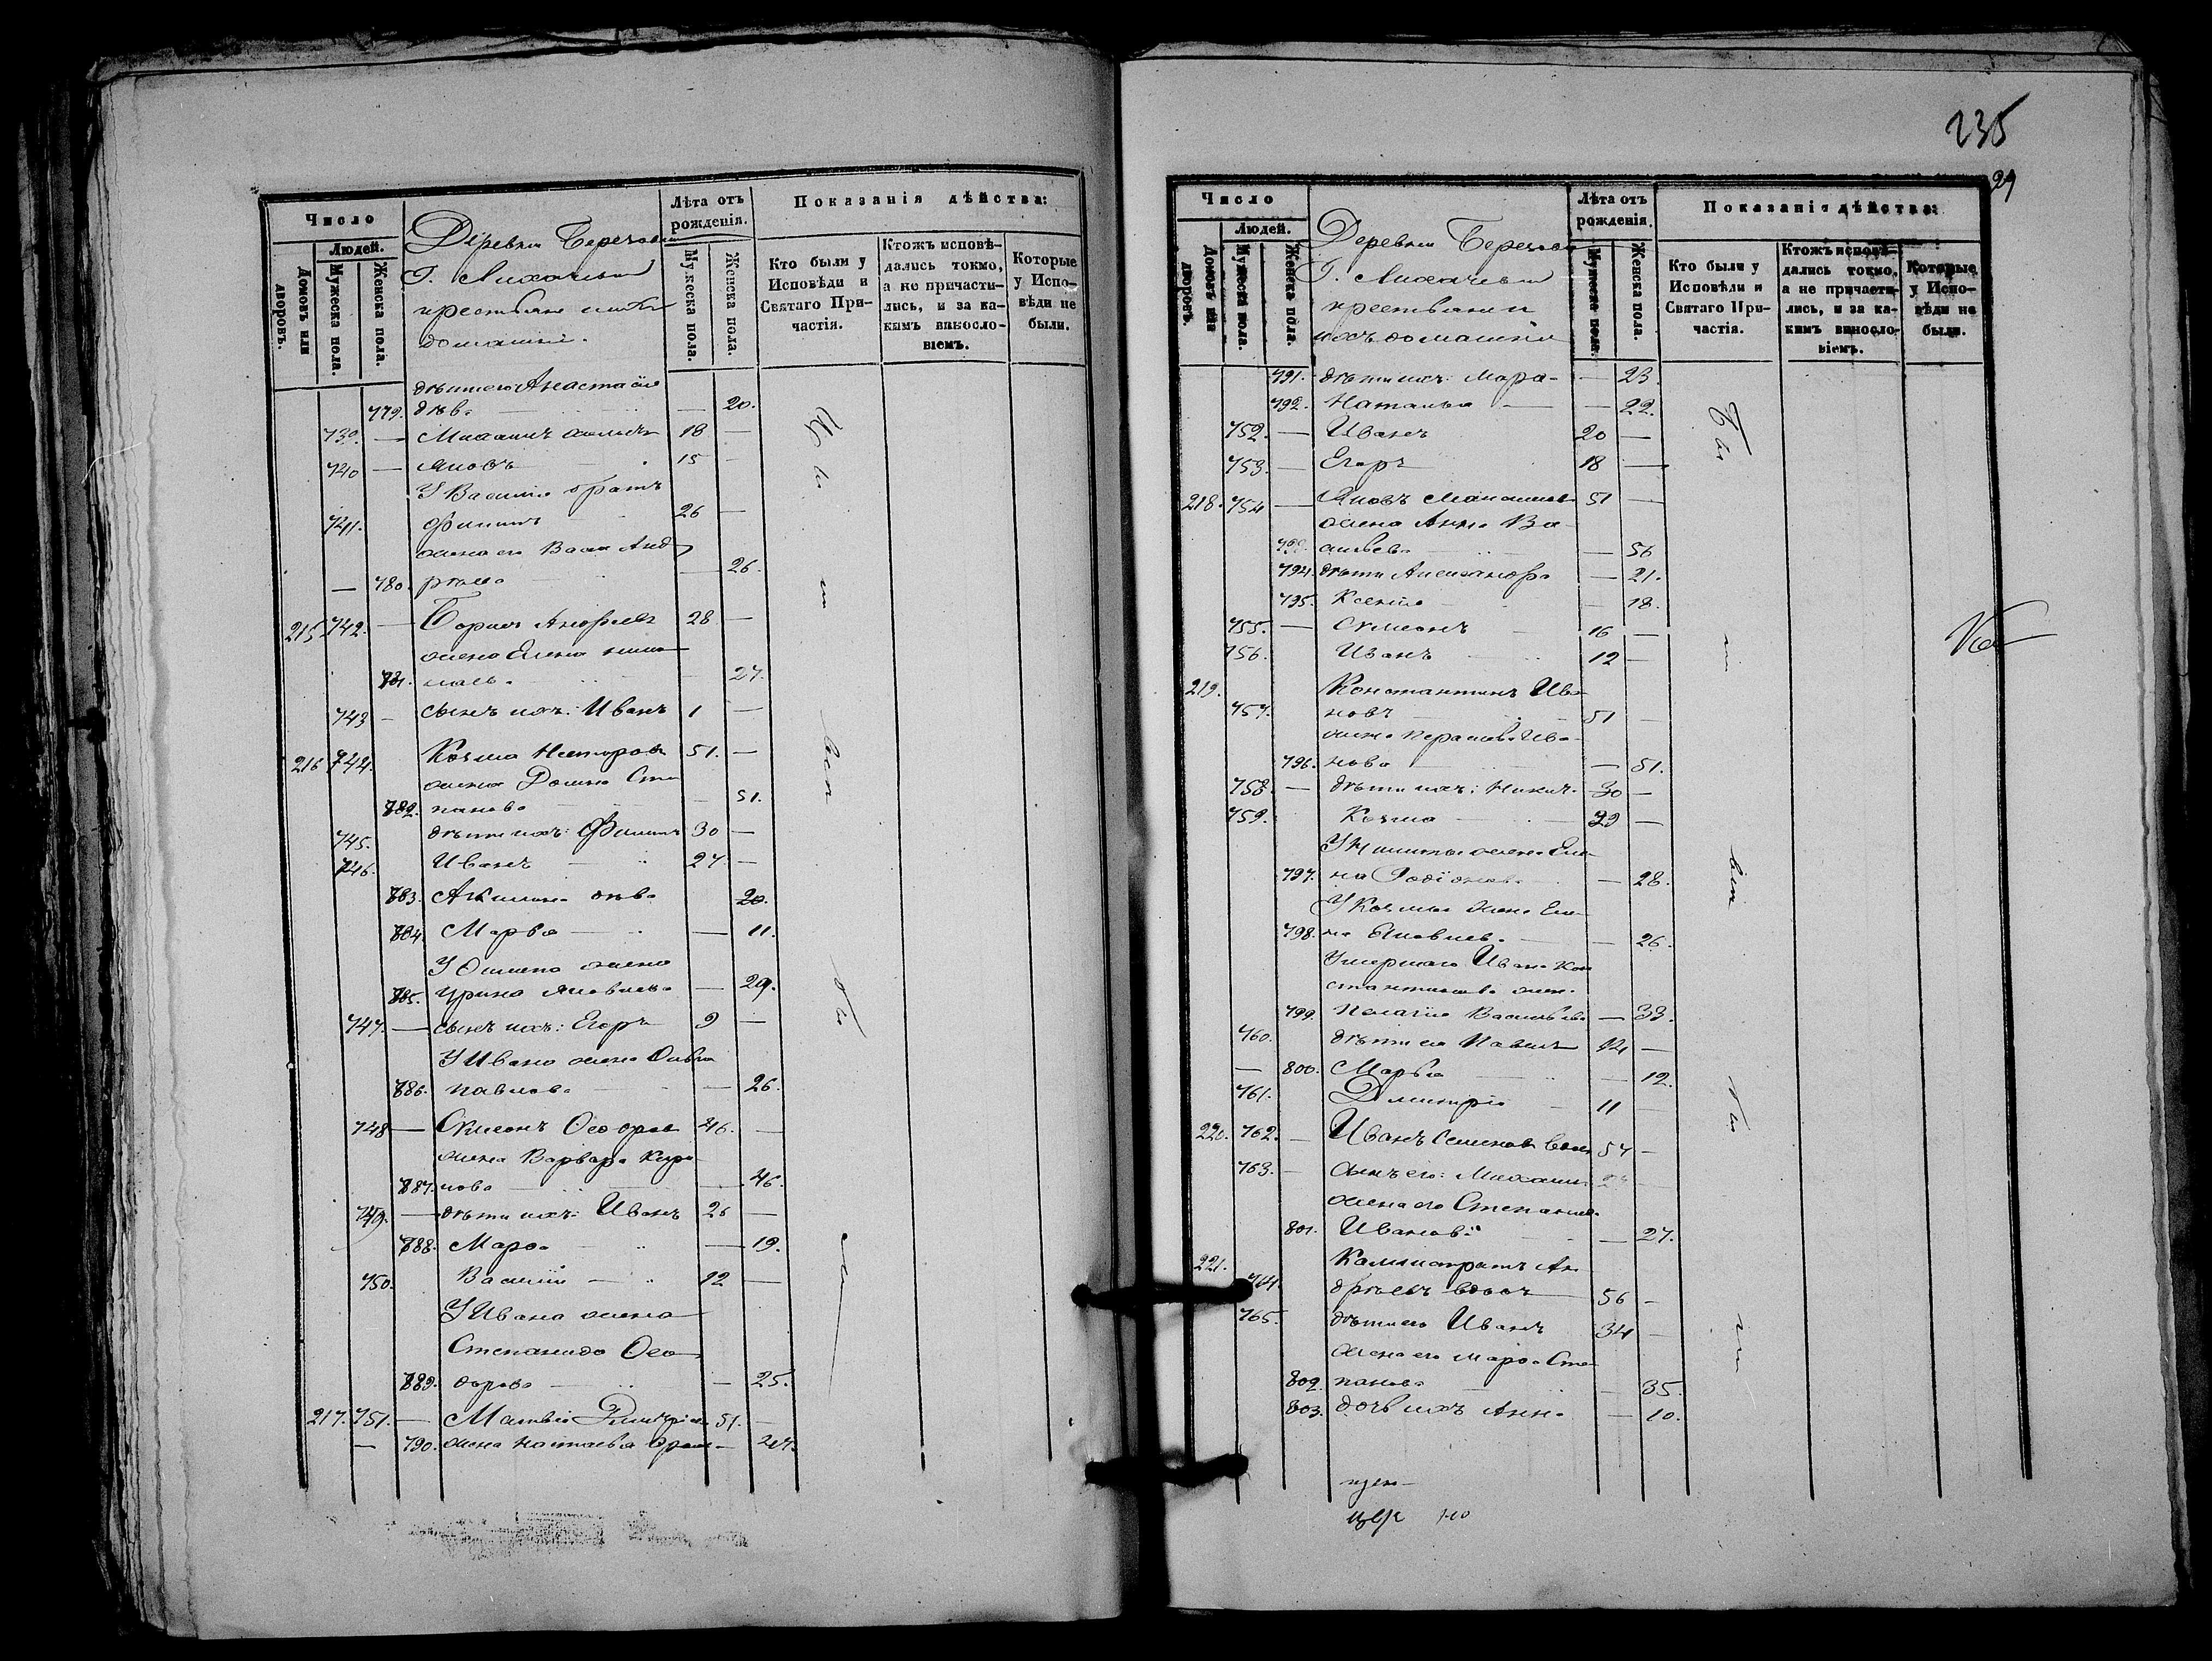 Число
Людей.
Домовъ или дворовъ.
Мужеска пола.
Женска пола.
Деревни
Г.
крестьяне
домашніи.
Лѣта отъ рожденія.
Мужеска пола.
Женска пола.
Показанія дѣйства:
Кто были у Исповѣди и Святаго Причастія.
Ктожъ исповѣдались токмо, а не причастились, и за какимъ винословіемъ.
Которые у Исповѣди не были.
дѣти его Анастасія
779. дѣв. — 20.
739. — Михаилъ 18 —
740 — Яковъ 15 —
У Василія братъ
741. Филипъ 26 —
жена его Васса Анд
— 780. рѣева — 26.
215 742. — Борисъ Андреевъ 28 —
жена Елена
781. 27.
743 — сынъ ихъ: Иванъ 1 —
216 744. Козма Несторовъ 51. —
жена Домна Сте
782. панова — 51.
745. дѣти ихъ: Филипъ 30 —
746. Иванъ 27 —
783. Акилина дѣв. 20.
784. Марѳа — 11.
У Филипа жена
785. Ирина Яковлева — 29.
747. — сынъ ихъ: Егоръ 9 —
У Ивана жена
786. Павлова — 26.
748 — Симеонъ Ѳеодоров 46. —
жена Варвара Кири
787. лова — 46.
749. — дѣти ихъ: Иванъ 26 —
788. Марѳа — 19.
750. Василій — 12 —
У Ивана жена
Степанида Ѳео
789. дорова — 25.
217. 751. — Матвѣй Димитріев 51. —
— 790. жена Наталья —
235
29
Число
Людей.
Домовъ или дворовъ.
Мужеска пола.
Женска пола.
Деревни
Г.
крестьяне и
ихъ домашніи
Лѣта отъ рожденія.
Мужеска пола.
Женска пола.
Показанія дѣйства:
Кто были у Исповѣди и Святаго Причастія.
Ктожъ исповѣдались токмо, а не причастились, и за какимъ винословіемъ.
Которые у Исповѣди не были.
791. дѣти ихъ: Марѳа — 23.
792. Наталья — 22.
752. — Иванъ 20 —
753. — Егоръ 18 —
218. 754 — Яковъ 51 —
жена Анна Ва
793. сильева — 56
794. дѣти Александра — 21.
795. Ксенія — 18.
755. — Симеонъ 16 —
756. Иванъ 12 —
219. Константинъ Ива
757. новъ 51 —
жена Параскева Ива
796. нова — 51.
758. — дѣти ихъ: Никит. 30 —
759. Козма 29 —
У Никиты жена Еле
797. на Родіонова — 28.
У Козмы жена Еле
798. на Яковлева — 26.
Умершаго Ивана Кон
стантинова жен.
799. Пелагія Васильева — 33.
760. дѣти ея Павелъ 14 —
— 800. Марѳа — 12.
761. Димитрій — 11 —
220. 762. — Иванъ Семеновъ вдов 54 —
763. — сынъ его: Михаилъ
жена его Степанида
801. Иванова — 27.
221. Каллистратъ Ан
764. дреевъ вдовъ 56 —
765. дѣти его Иванъ 34 —
жена его Марѳа Сте
802. панова — 35.
803. дочь ихъ Анна — 10.